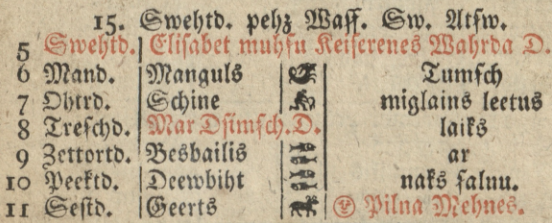 15. Swehtd. pehz Wass. Sw. Atsw.
5 Swehtd. Elisabet muhsu Keiserenes Wahrda D.
6 Mand. Manguls Tumsch
7 Ohtrd. Schine miglains leetus
8 Treschd. Mar Dsimsch. D. laiks
9 Zettortd. Besbailis ar
10 Peektd. Deewbiht naks salnu.
11 Sestd. Geerts Pilna Mehnes.